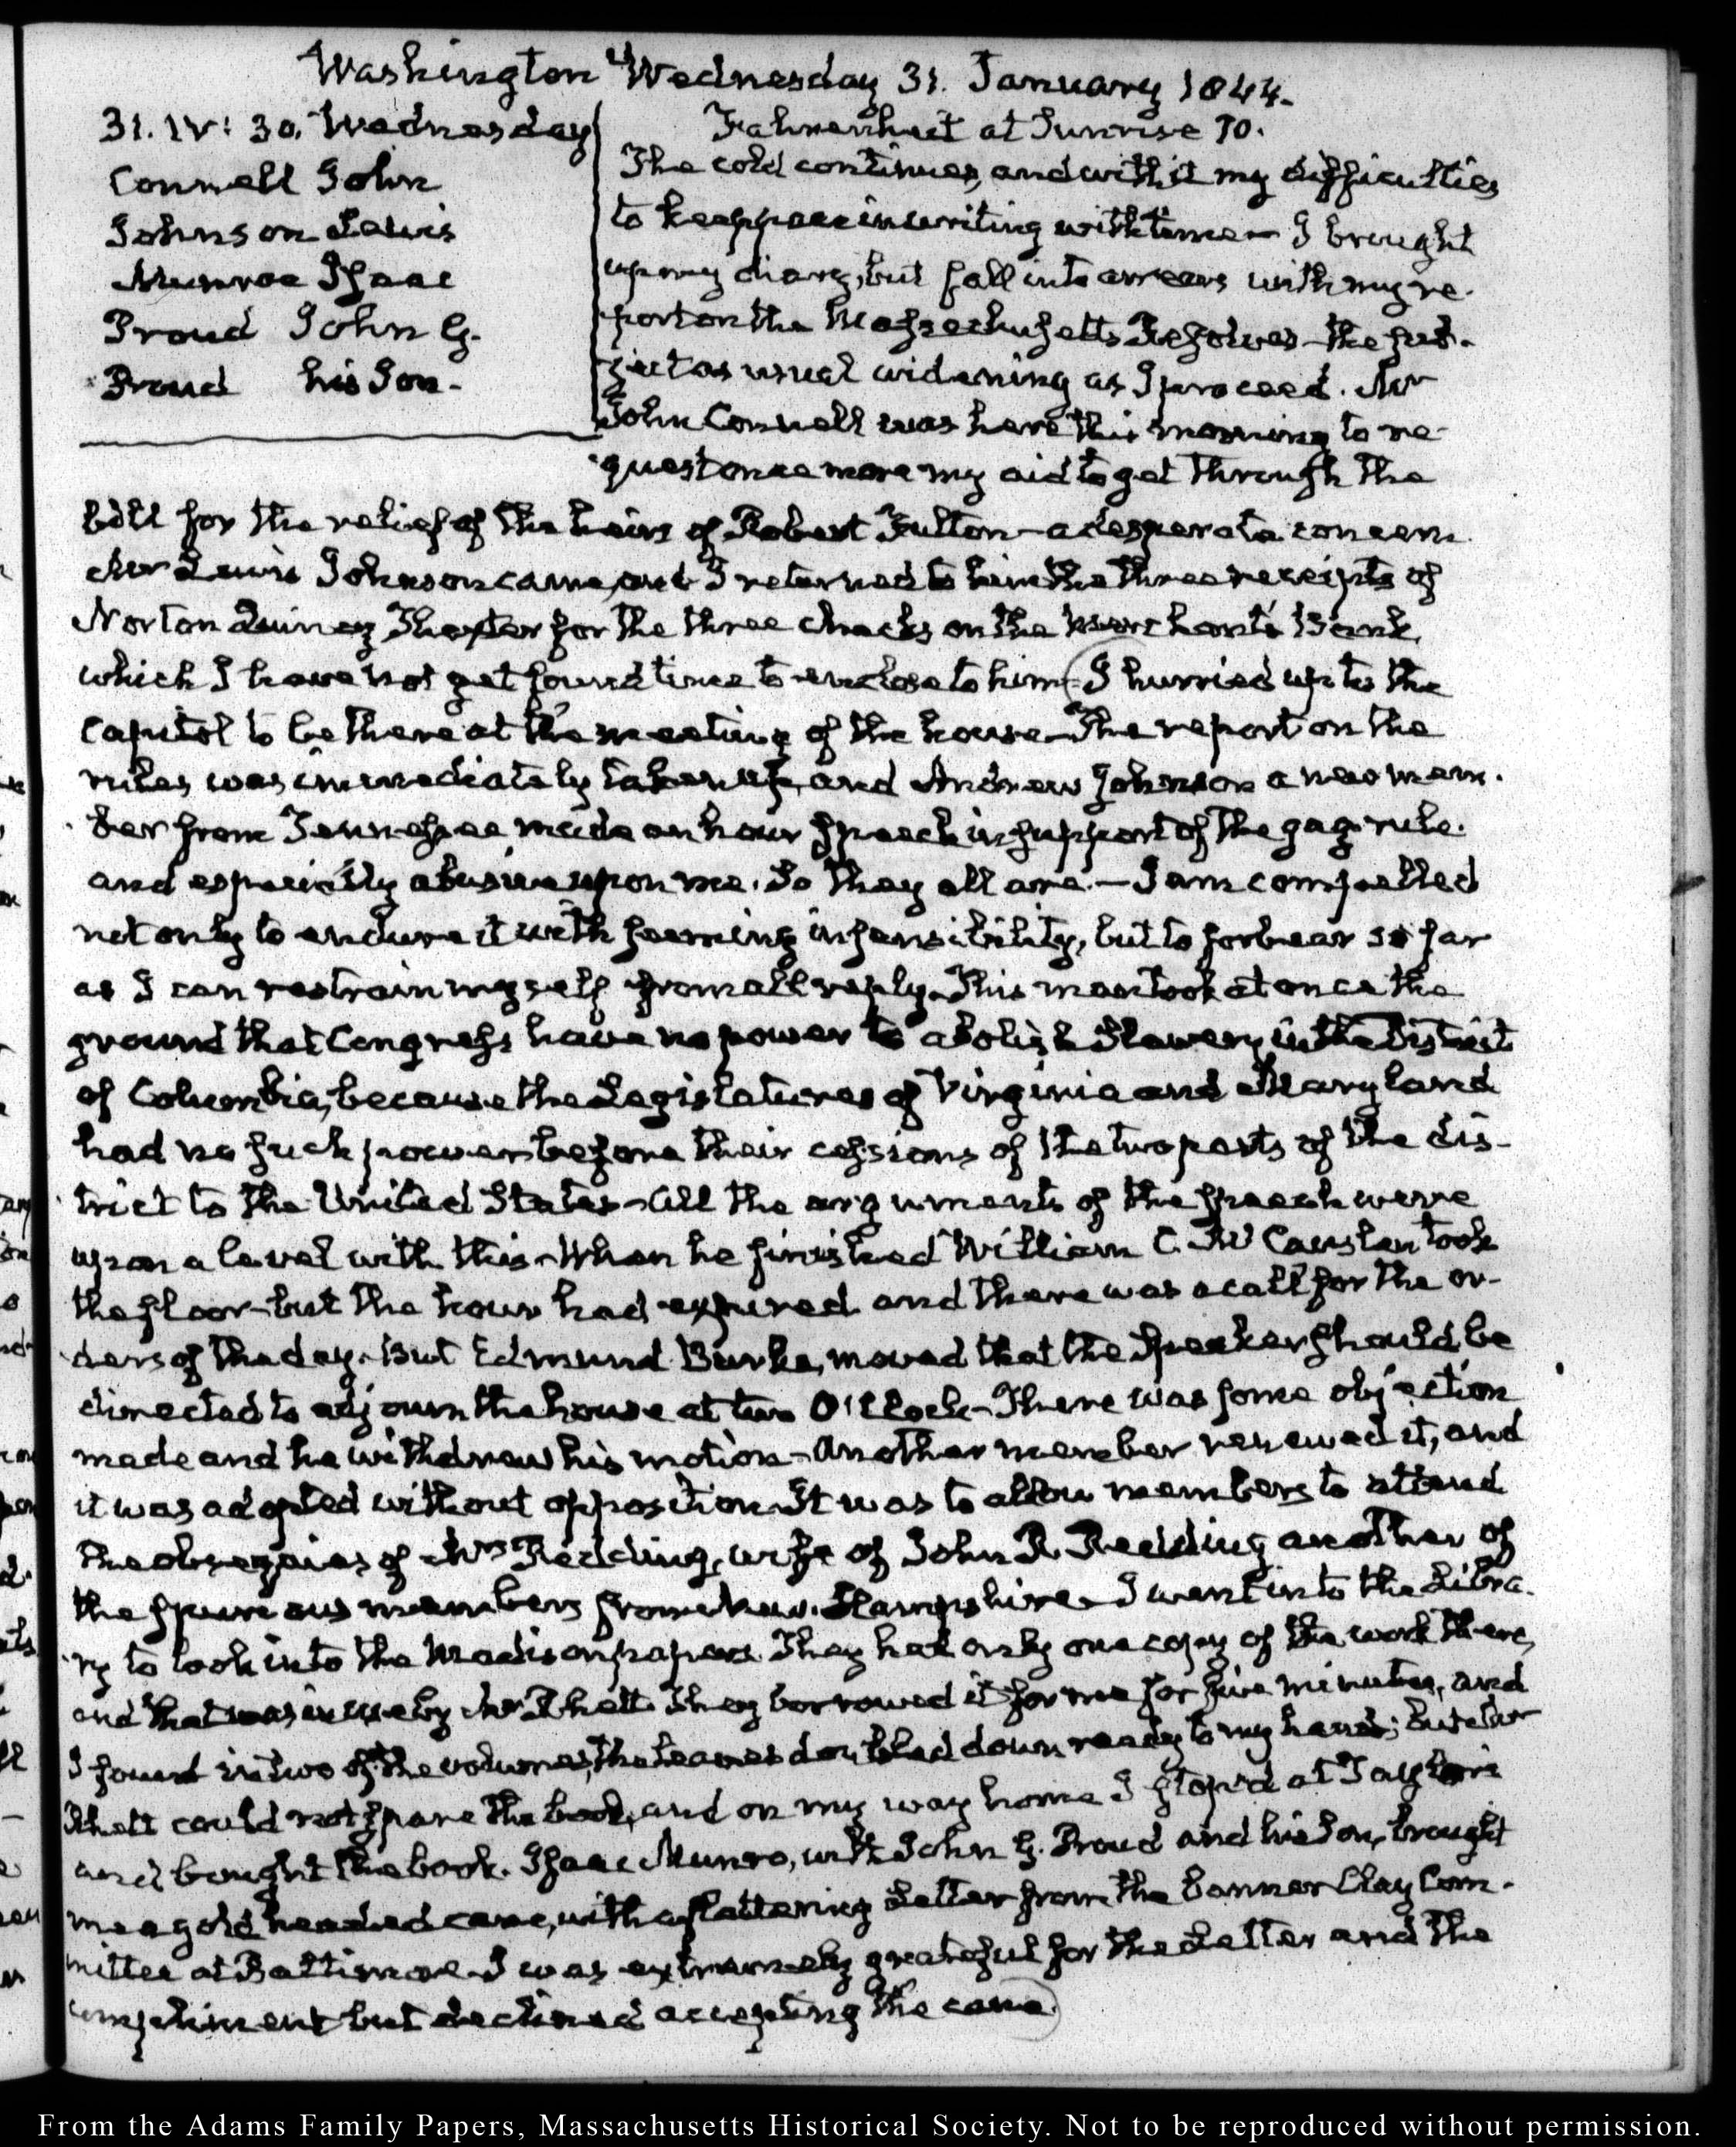 Washington Wednesday 31. January 1844.
31. IV: 30. Wednesday
Connell John
Johnson Lewis
Munroe Isaac
Proud John G.
Proud his Son.
Fahrenheit at Sunrise 10.
The cold continues, and with it my difficulties
to keep pace in writing with time — I brought
up my diary, but fall into arrears with my re-
port on the Massachusetts Resolves — the sub-
ject as usual widening as I proceed. Mr
John Connell was here this morning to re-
quest once more my aid to get through the
bill for the relief of the heirs of Robert Fulton — a desperate concern.
Mr Lewis Johnson came, and I returned to him the three receipts of
Norton Quincy Thaxter for the three checks on the Merchants Bank,
which I have not yet found time to enclose to him — I hurried up to the
Capitol to be there at the meeting of the house — The report on the
rules was immediately taken up, and Andrew Johnson a new mem-
ber from Tennessee made an hour speech in support of the gag-rule.
and especially abusive upon me. So they all are. — I am compelled
not only to endure it with seeming insensibility, but to forbear so far
as I can restrain myself from all reply. This man took at once the
ground that Congress have no power to abolish Slavery in the District
of Columbia, because the Legislatures of Virginia and Maryland
had no such power before their cessions of the two parts of the dis-
trict to the United States — All the arguments of the speech were
upon a level with this — When he finished William C. McCauslen took
the floor — but the hour had expired and there was a call for the or-
ders of the day. But Edmund Burke, moved that the Speaker should be
directed to adjourn the house at two O'Clock — There was some objection
made and he withdrew his motion — Another member renewed it, and
it was adopted without opposition. It was to allow members to attend
the obsequies of Mrs Redding, wife of John R. Redding another of
the spurious members from New-Hampshire — I went into the Libra-
ry to look into the Madison papers. They had only one copy of the work there,
and that was in use by Mr Rhett. They borrowed it for me for five minutes, and
I found in two of the volumes, the leaves doubled down ready to my hand; but Mr
Rhett could not spare the book, and on my way home I stop'd at Taylor's
and bought the book. Isaac Munro, with John G. Proud and his Son, brought
me a gold headed cane, with a flattering Letter from the banner Clay Com-
mittee at Baltimore — I was extremely grateful for the Letter and the
compliment but declined accepting the cane.
From the Adams Family Papers, Massachusetts Historical Society. Not to be reproduced without permission.